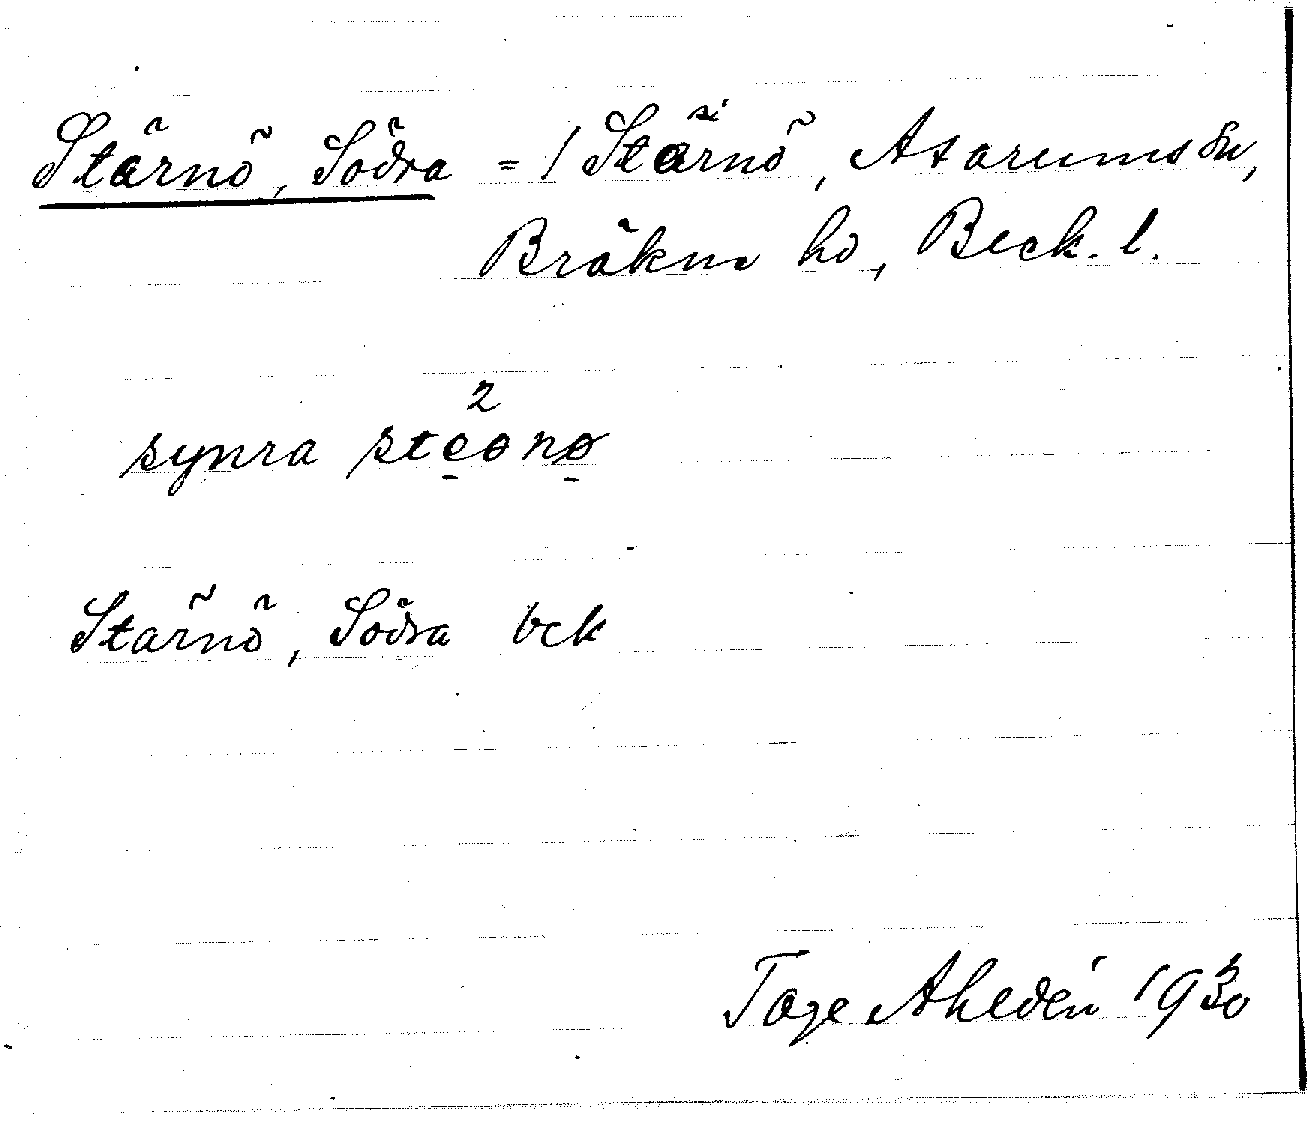 Stärnö, Södra = / Stärnö, Asarums sn,
Bräkne hd, Bleck. l.
synra steǝnø
Stärnö, Södra bck
Tage Ahldén 1930